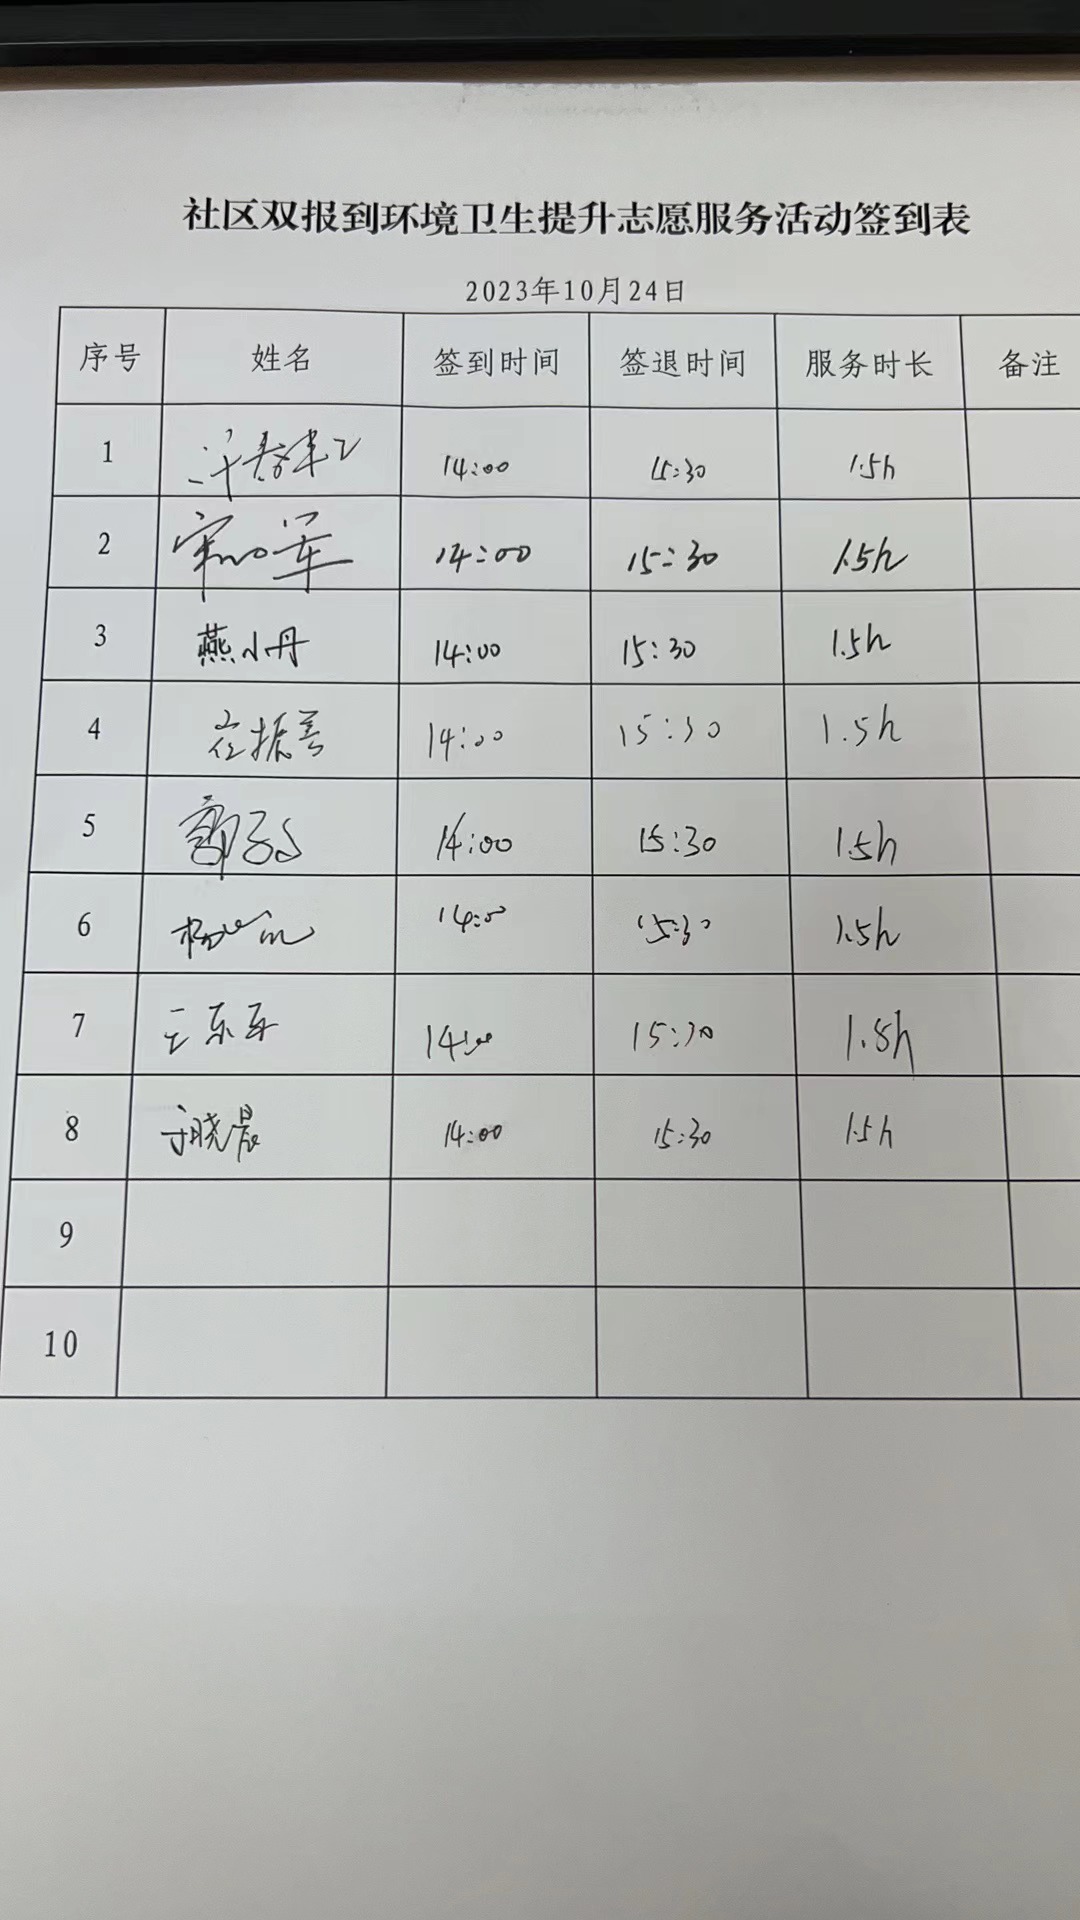 社区双报到环境卫生提升志愿服务活动签到表
2023年10月24日
序号 姓名 签到时间 签退时间 服务时长 备注
1 14:00 15:30 1.5h
2 14:00 15:30 1.5h
3 燕小丹 14:00 15:30 1.5h
4 崔振善 14:00 15:30 1.5h
5 14:00 15:30 1.5h
6 14:00 15:30 1.5h
7 王东 14:00 15:30 1.8h
8 于晓晨 14:00 15:30 1.5h
9
10